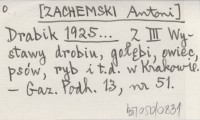 [ZACHEMSKI Antoni]
Drabik 1925... Z III Wy-
stawy drobiu, gołębi, owiec,
psów, ryb i t.d. w Krakowie.
– Gaz. Podh. 13, nr 51.